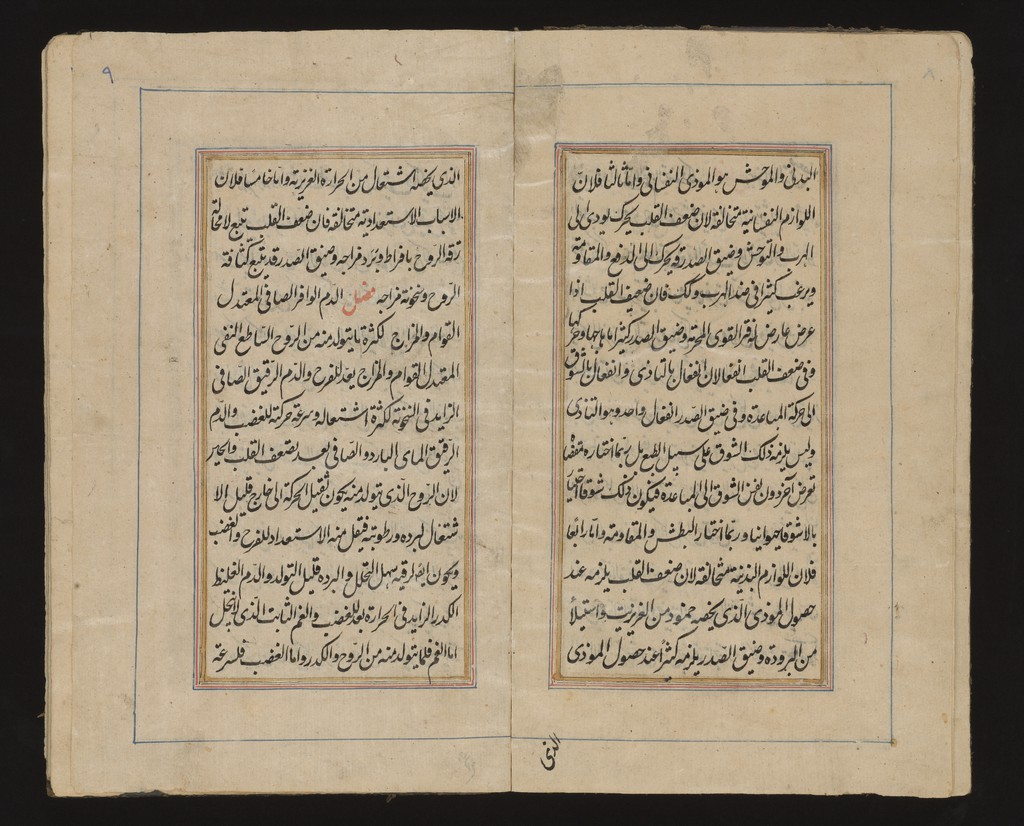 ٨
البدنی والموحش هو الموذی النفسانی واما ثالثا فلان
اللوازم النفسانیة متخالفة لان ضعف القلب یحرک یودی الی
الهرب والتوحش وضیق الصدر قد یحرک الی الدفع والمقاومة
ویرغب کثیرا فی ضد الهرب وذلک فان ضعیف القلب اذا
عرض عارض لوفر القوی المحرکة وضیق الصدر کثیرا ما
وفی ضعف القلب انفعالان انفعال بالتاذی وانفعال بالشوق
الی حرکة المباعدة وفی ضیق الصدر انفعال واحد وهو التاذی
ولیس یلزمه ذلک الشوق علی سبیل الطبع بل ربما اختاره
لغرض آخر دون نفس الشوق الی المباعدة فیکون ذلک شوقا اختیار
یا لا شوقا حیوانیا وربما اختار البطش والمقاومة واما رابعا
فلان اللوازم البدنیة متخالفة لان ضعف القلب یلزمه عند
حصول الموذی الذی یخصه خمود من الغریزیة واستیلأ
من البرودة وضیق الصدر یلزمه کثیرا عند حصول الموذی
الذی
٩
الذی یخصه اشتعال من الحرارة الغریزیة واما خامسا فلان
الاسباب الاستعدادیة متخالفة فان ضعف القلب یتبع لا محالة
رقة الروح بافراط وبرد مزاجه وضیق الصدر قد یتبع کثافة
الروح وسخونة مزاجه فصل الدم الوافر الصافی المعتدل
القوام والمزاج لکثرة ما یتولد منه من الروح الساطع النقی
المعتدل القوام والمزاج یعد للفرح والدم الرقیق الصافی
الزاید فی السخونة لکثرة اشتعاله وسرعة حرکته للغضب والدم
الرقیق المای البارد والصافی یعد لضعف القلب والجبن
لان الروح الذی یتولد منه یکون ثقیل الحرکة الی خارج قلیل الا
شتعال لبرده ورطوبته فیقل منه الاستعداد للفرح والغضب
ویکون ایضا لرقته سهل التحلل ولبرده قلیل التولد والدم الغلیظ
الکدر الزاید فی الحرارة یعد للغضب والغم الثابت الذی لا ینحل
اما الغم فلما یتولد منه من الروح والکدر واما الغضب فلسرعة